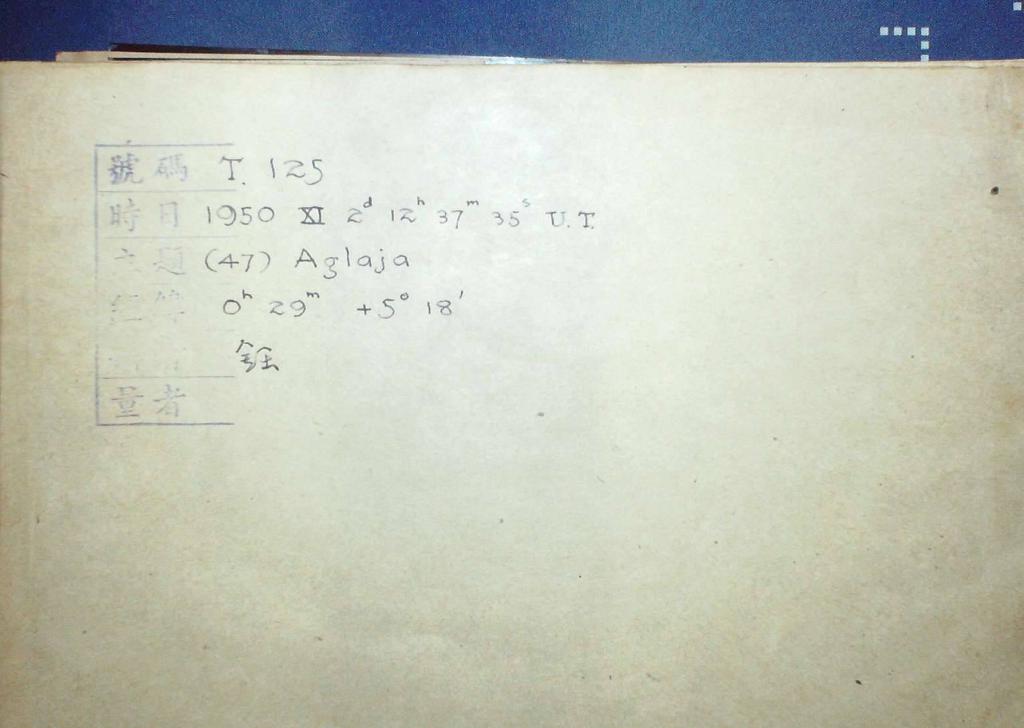 號碼 T. 125
時日 1950 XI 2ᵈ 12ʰ 37ᵐ 35ˢ U.T.
題 (47) Aglaja
0ʰ 29ᵐ +5° 18'
鈺
量者